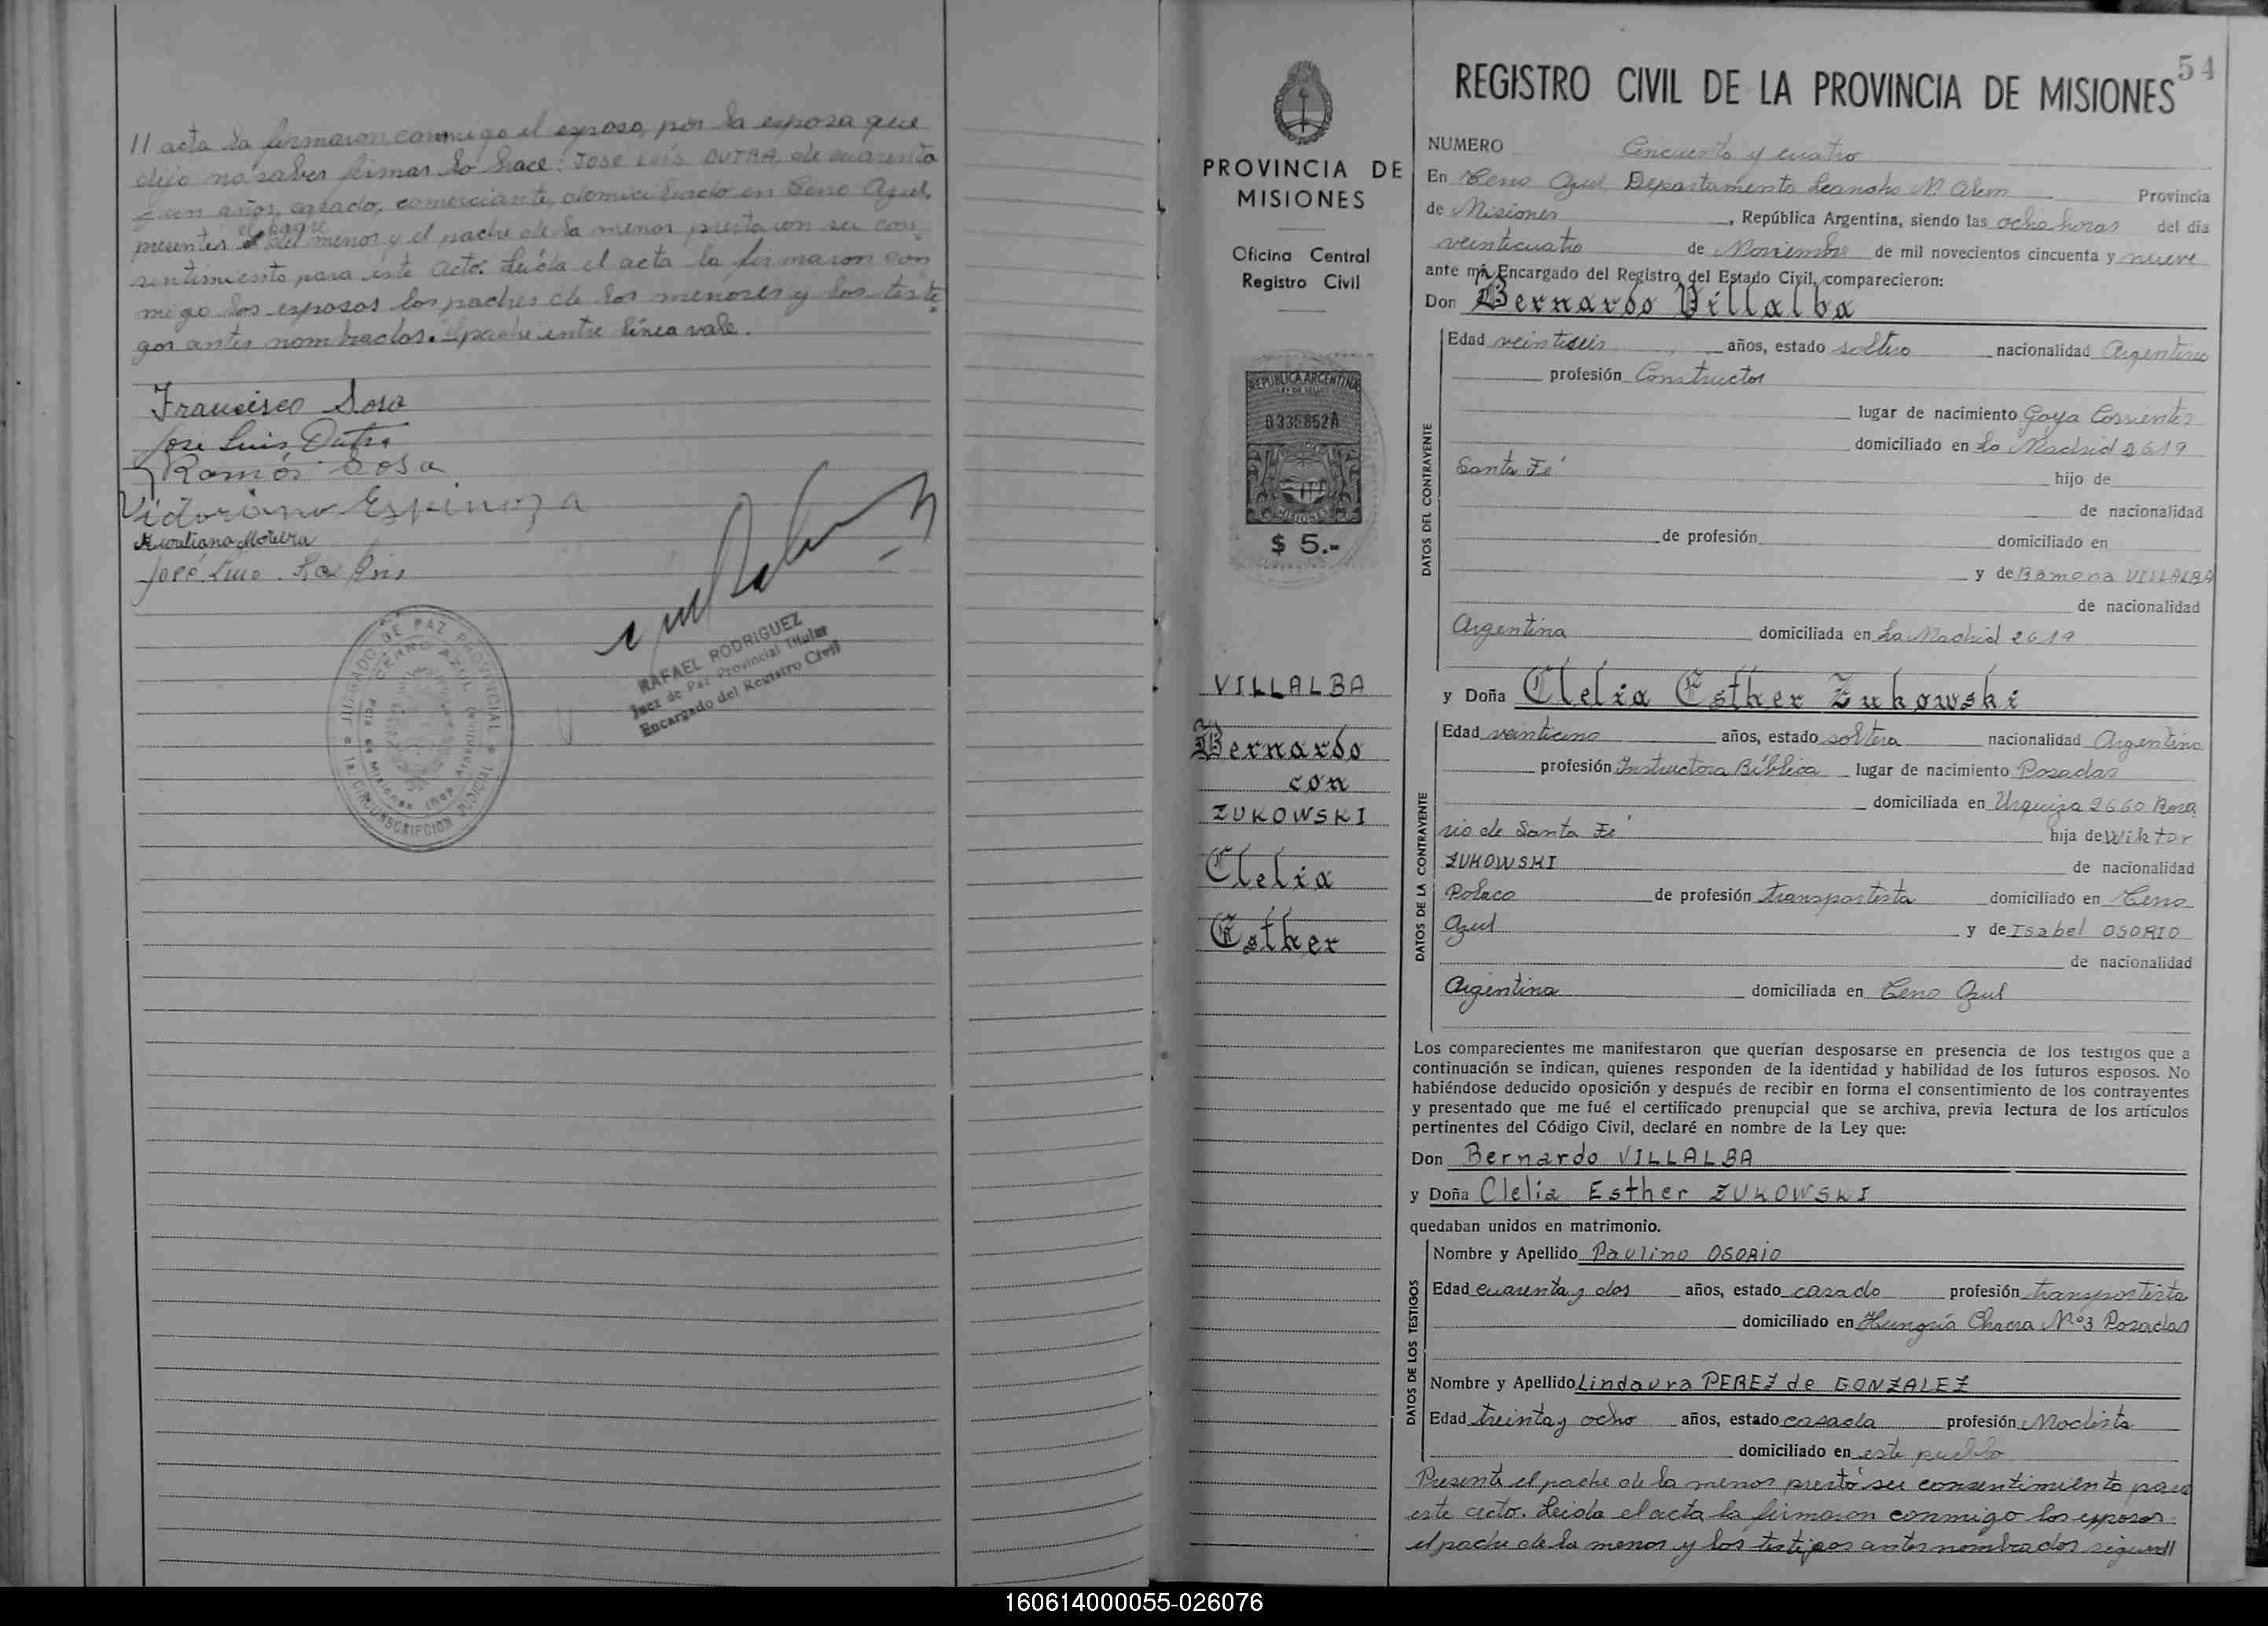 // acta la firmaron conmigo el esposo, por la esposa que
dijo no saber firmar lo hace: JOSE LUIS DUTRA, de cuarenta
y un años, casado, comerciante, domiciliado en Cerro Azul,
el padre
presentes del menor y el padre de la menor prestaron su con-
sentimiento para este acto. Leída el acta la firmaron con
migo los esposos los padres de los menores y los testi-
gos antes nombrados. El padre entre línea vale.
Francisco Sosa
Jose Luis Dutra
Ramón Sosa
Victoriano Espinoza
Moreira
José Luis
RAFAEL RODRIGUEZ
Juez de Paz Provincial Titular
Encargado del Registro Civil
JUZGADO DE PAZ PROVINCIAL
CERRO AZUL
Pcia. de Misiones (Rep. Argentina)
1a. CIRCUNSCRIPCION JUDICIAL
PROVINCIA DE
MISIONES
Oficina Central
Registro Civil
REPUBLICA ARGENTINA
LEY DE SELLOS
0335852A
MISIONES
$ 5.-
VILLALBA
Bernardo
con
ZUKOWSKI
Clelia
Esther
54
REGISTRO CIVIL DE LA PROVINCIA DE MISIONES
NUMERO Cincuenta y cuatro
En Cerro Azul, Departamento Leandro N. Alem Provincia
de Misiones, República Argentina, siendo las ocho horas del día
veinticuatro de Noviembre de mil novecientos cincuenta y nueve
ante mi, Encargado del Registro del Estado Civil, comparecieron:
Don Bernardo Villalba
DATOS DEL CONTRAYENTE
Edad veintiseis años, estado soltero nacionalidad Argentino
profesión Constructor
lugar de nacimiento Goya Corrientes
domiciliado en La Madrid 2619
Santa Fé hijo de
de nacionalidad
de profesión domiciliado en
y de Ramona VILLALBA
de nacionalidad
Argentina domiciliada en La Madrid 2619
y Doña Clelia Esther Zukowski
DATOS DE LA CONTRAYENTE
Edad veintiuno años, estado soltera nacionalidad Argentina
profesión Instructora Bíblica lugar de nacimiento Posadas
domiciliada en Urquiza 2660 Rosa
rio de Santa Fé hija de Wiktor
ZUKOWSKI de nacionalidad
Polaco de profesión transportista domiciliado en Cerro
Azul y de Isabel OSORIO
de nacionalidad
Argentina domiciliada en Cerro Azul
Los comparecientes me manifestaron que querían desposarse en presencia de los testigos que a
continuación se indican, quienes responden de la identidad y habilidad de los futuros esposos. No
habiéndose deducido oposición y después de recibir en forma el consentimiento de los contrayentes
y presentado que me fué el certificado prenupcial que se archiva, previa lectura de los artículos
pertinentes del Código Civil, declaré en nombre de la Ley que:
Don Bernardo VILLALBA
y Doña Clelia Esther ZUKOWSKI
quedaban unidos en matrimonio.
DATOS DE LOS TESTIGOS
Nombre y Apellido Paulino OSORIO
Edad cuarenta y dos años, estado casado profesión transportista
domiciliado en Hungría Chacra Nº3 Posadas
Nombre y Apellido Lindaura PEREZ de GONZALEZ
Edad treinta y ocho años, estado casada profesión Modista
domiciliado en este pueblo
Presente el padre de la menor prestó su consentimiento para
este acto. Leida el acta la firmaron conmigo los esposos
el padre de la menor y los testigos antes nombrados sigue//
160614000055-026076